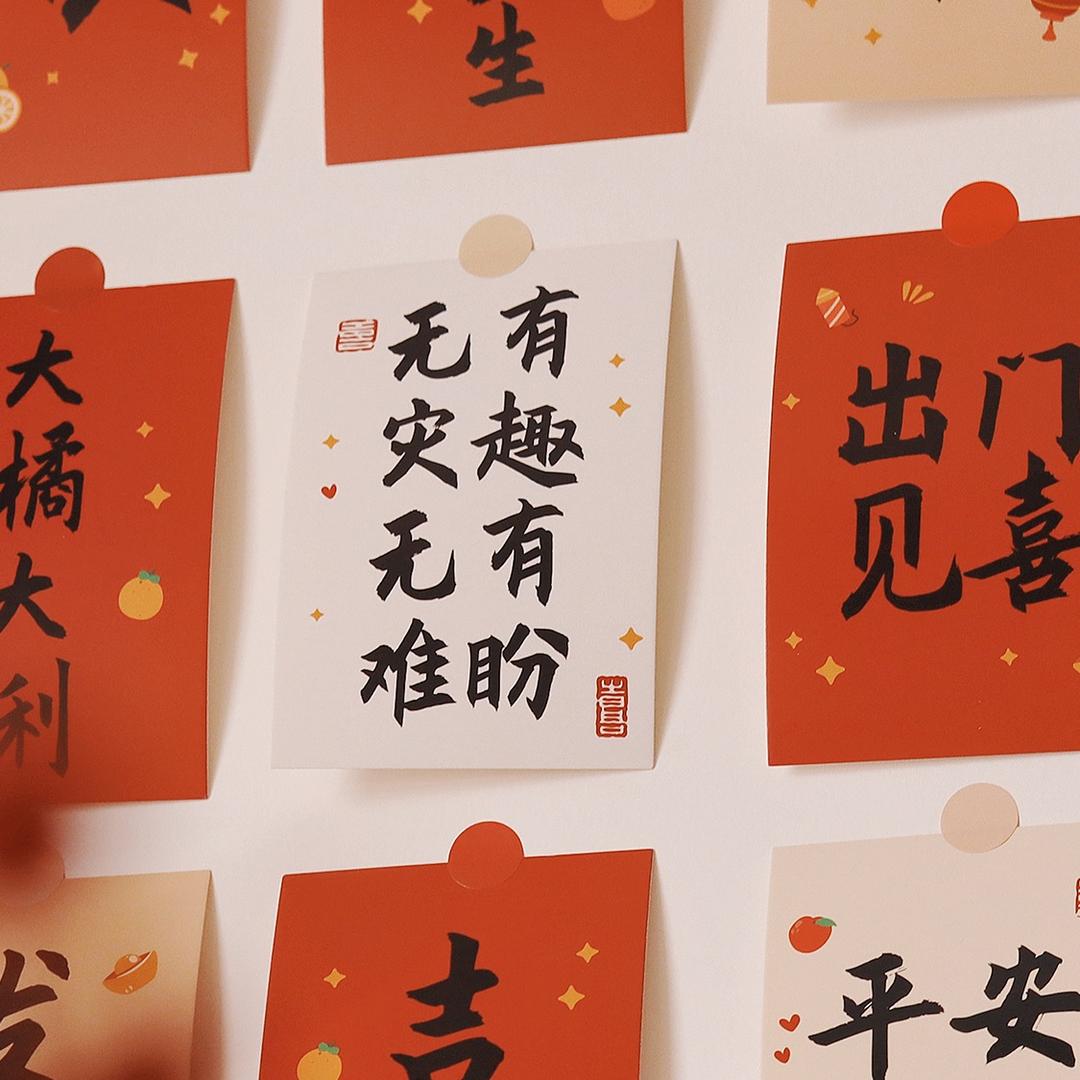 生
大橘大利
有趣有盼
无灾无难
出门
见喜
发
吉
平安